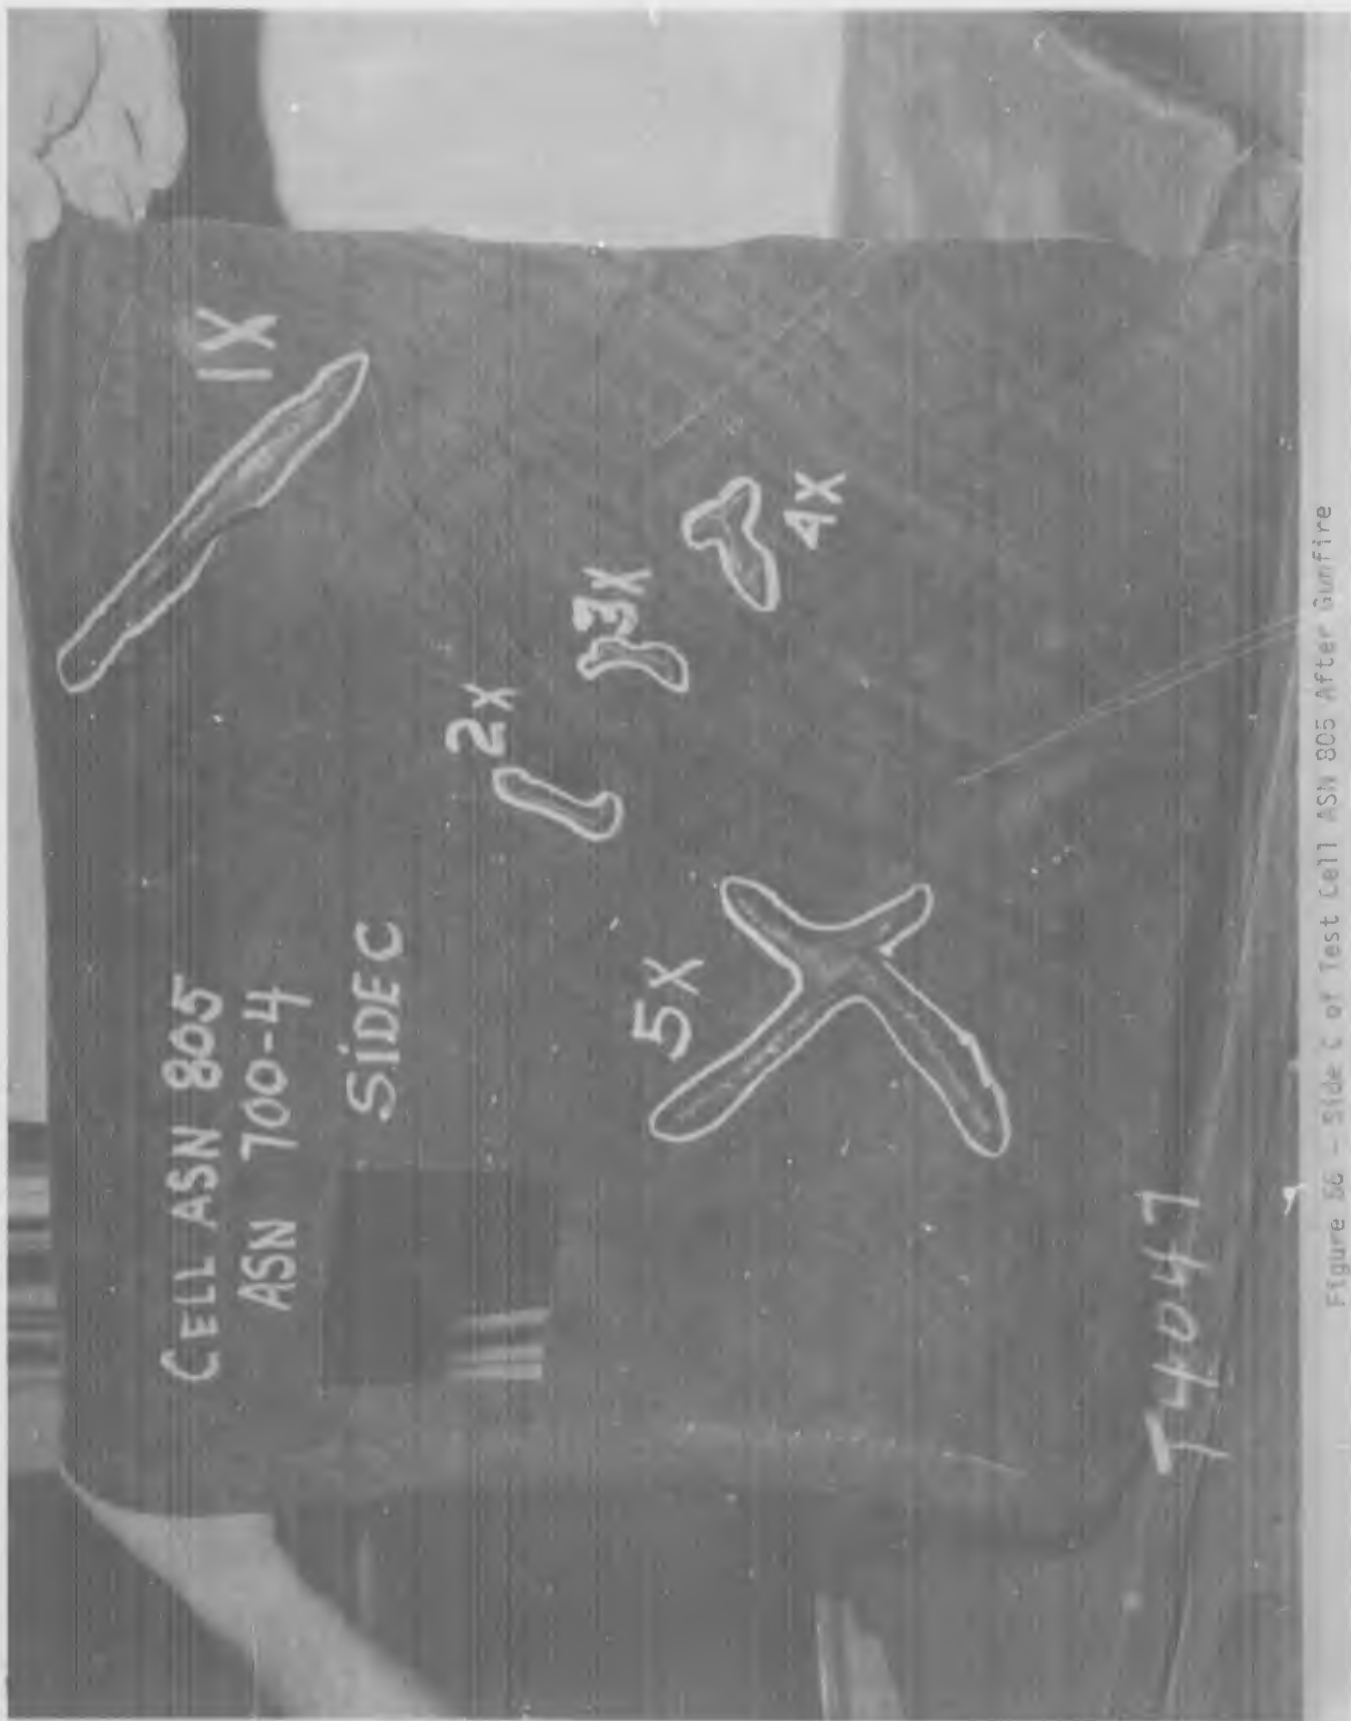 CELL ASN 805
ASN 700-4
SIDE C
1X
2X
3X
4X
5X
T4047
Figure 56 - Side C of Test Cell ASN 805 After Gunfire